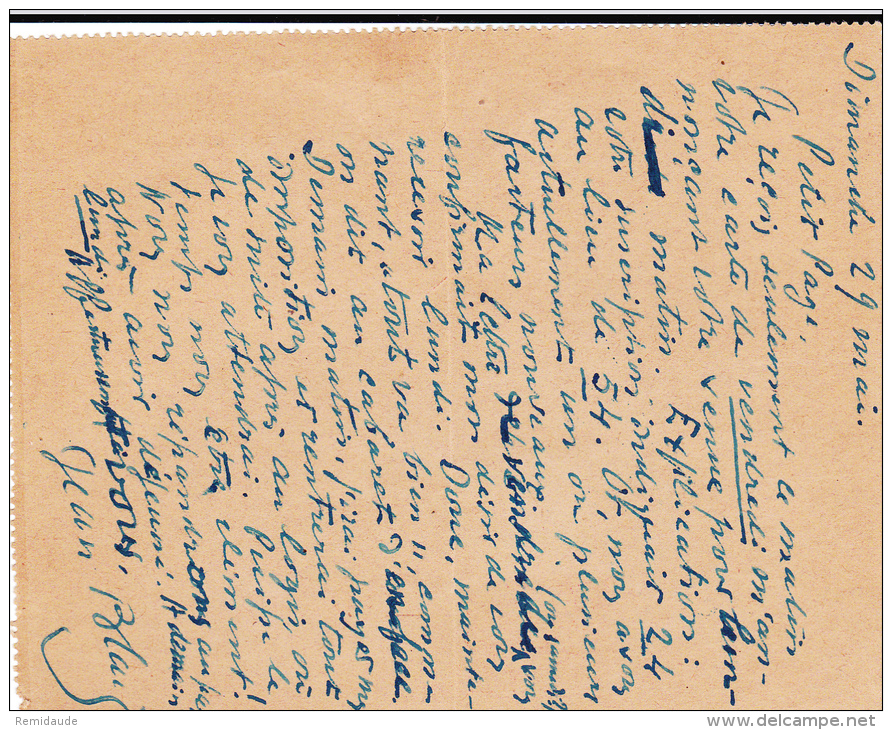 Dimanche 29 mai.
Petit Page,
Je reçois seulement ce matin
votre carte de vendredi m'an-
nonçant votre venue pour lun-
di matin. Explication :
votre suscription indiquait 24
au lieu de 54. Or, nous avons
actuellement un ou plusieurs
facteurs nouveaux
Ma lettre de vous
confirmait mon désir de vous
recevoir lundi. Donc, mainte-
nant, "tout va bien", comme
on dit au cabaret d'en face.
Demain matin, j'irai payer mes
impositions et rentrerai tout
de suite après au logis, où
je vous attendrai. Puisse le
temps nous être clément !
Nous nous
après avoir déjeuné. A demain
lundi, affectueusement à vous,
Jean
Remidaude
www.delcampe.net